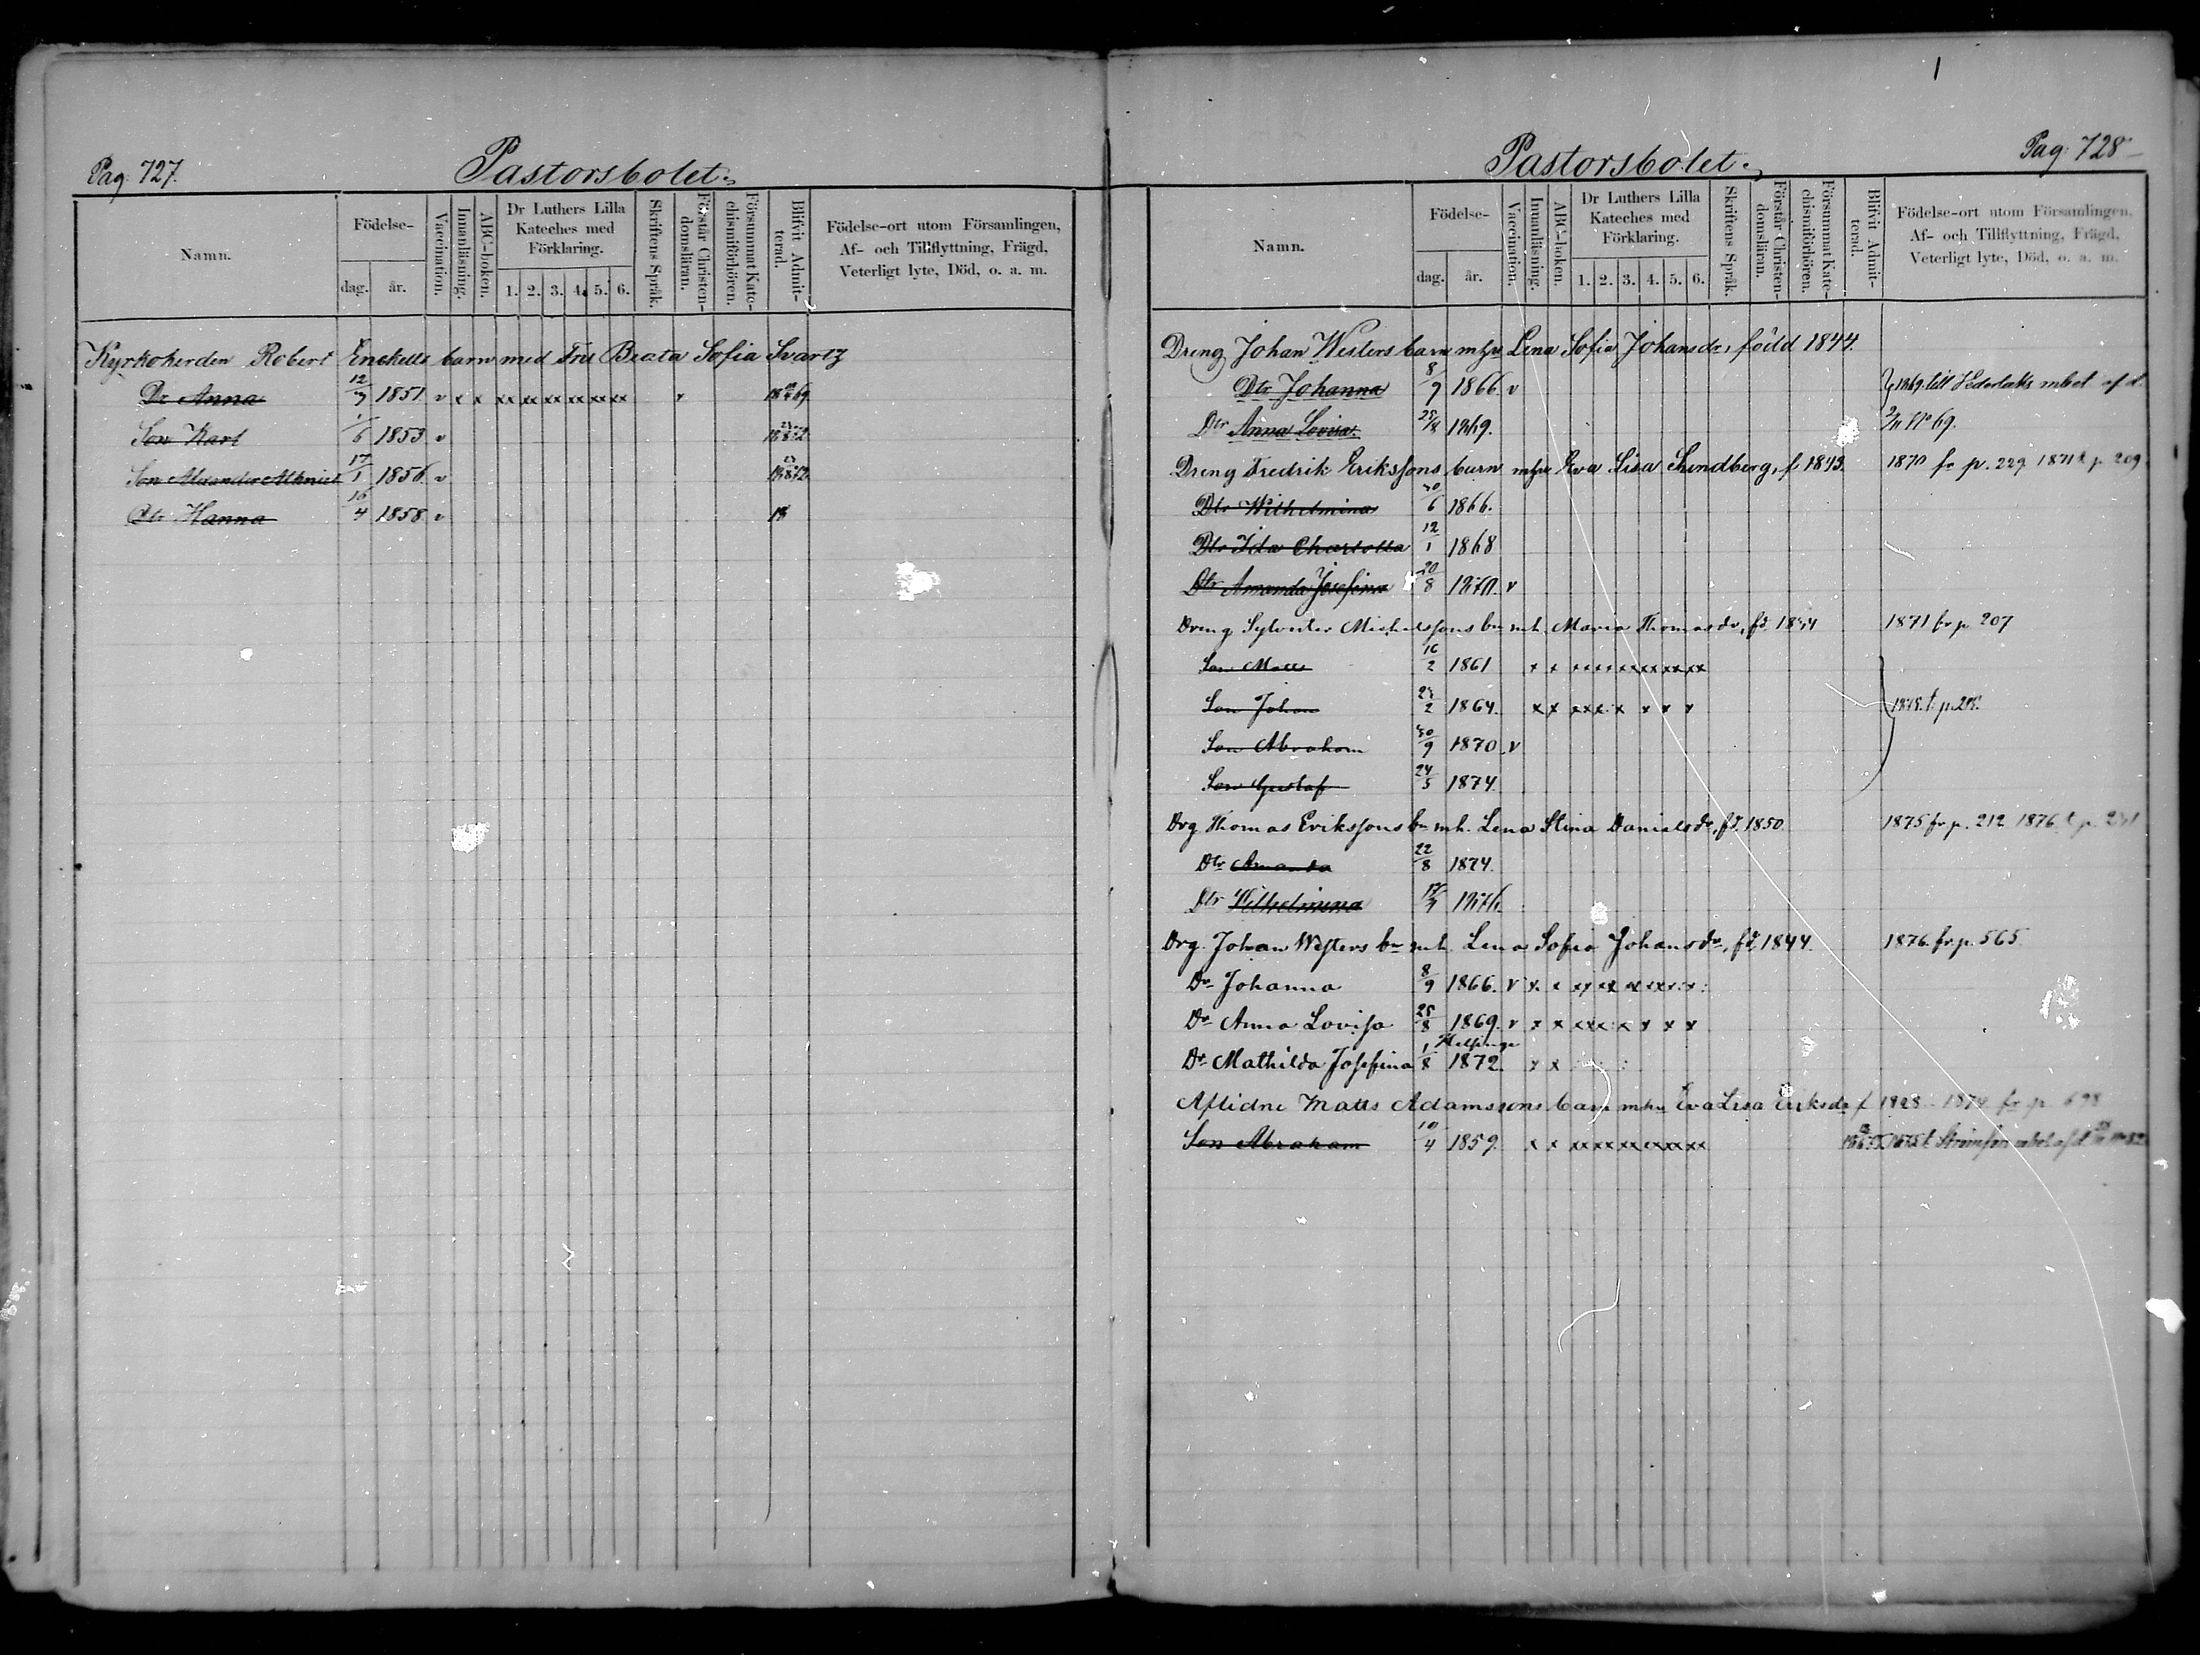 Pag: 727.
Pastorsbolet.
Namn.
Födelse-
dag. år.
Vaccination.
Innanläsning.
ABC-boken.
Dr Luthers Lilla Kateches med Förklaring.
1. 2. 3. 4. 5. 6.
Skriftens Språk.
Förstår Christendomsläran.
Försummat Katechismiförhören.
Blifvit Admitterad.
Födelse-ort utom Församlingen,
Af- och Tillflyttning, Frägd,
Veterligt lyte, Död, o. a. m.
Kyrkoherden Robert Enckells barn med Fru Beata Sofia Svartz
Dr Anna 12/3 1851. v x x xx xx xx xx xx xx v
Son Karl 1853 v
17/1 1856. v
Dtr Hanna 16/4 1858 v 18
Pag: 728
Pastorsbolet.
Namn.
Födelse-
dag. år.
Vaccination.
Innanläsning.
ABC-boken.
Dr Luthers Lilla Kateches med Förklaring.
1. 2. 3. 4. 5. 6.
Skriftens Språk.
Förstår Christendomsläran.
Försummat Katechismiförhören.
Blifvit Admitterad.
Födelse-ort utom Församlingen,
Af- och Tillflyttning, Frägd,
Veterligt lyte, Död, o. a. m.
Dreng Johan Westers barn mhu Lena Sofia Johansdr, född 1844.
Dtr Johanna 8/9 1866 v 1869. till
Dtr Anna Lovisa. 25/8 1869. 69.
Dreng Fredrik Erikssons barn mhu Eva Lisa Sundberg, f 1843. 1870 fr p. 229 1871 t p 209
Dtr Wilhelmina 30/6 1866.
Dtr Ida Charlotta 12/1 1868
Dtr Amanda Josefina 20/8 1870. v
Dreng Sylvester Michelssons bn mh. Maria Thomasdr, fd 1871 fr p 207
Son Matts 16/2 1861 x x xx xx xx xx xx xx
Son Johan 1864. x x xx x x x x x
Son Abraham 30/9 1870. v
Son Gustaf 24/5 1874.
Drg Thomas Erikssons bn mh. Lena Stina Danielsdr, fd. 1850. 1875 fr p. 212 1876 t p.
Dtr Amanda 22/8 1874.
Dtr Wilhelmina 1876.
Drg. Johan Westers bn mh. Lena Sofia Johansdr, fd 1844. 1876. fr p. 565
Dr Johanna 8/9 1866. v x x xx xx xx xx x
Dr Anna Lovisa 25/8 1869. v x x xx x x x x x
Dr Mathilda Josefina 1/8 1872. x x
Aflidne Matts Adamssons barn mhu Eva Lisa Eriksdr f 1828. 1874 fr p 698
Son Abraham 10/4 1859. x x xx xx xx xx xx xx